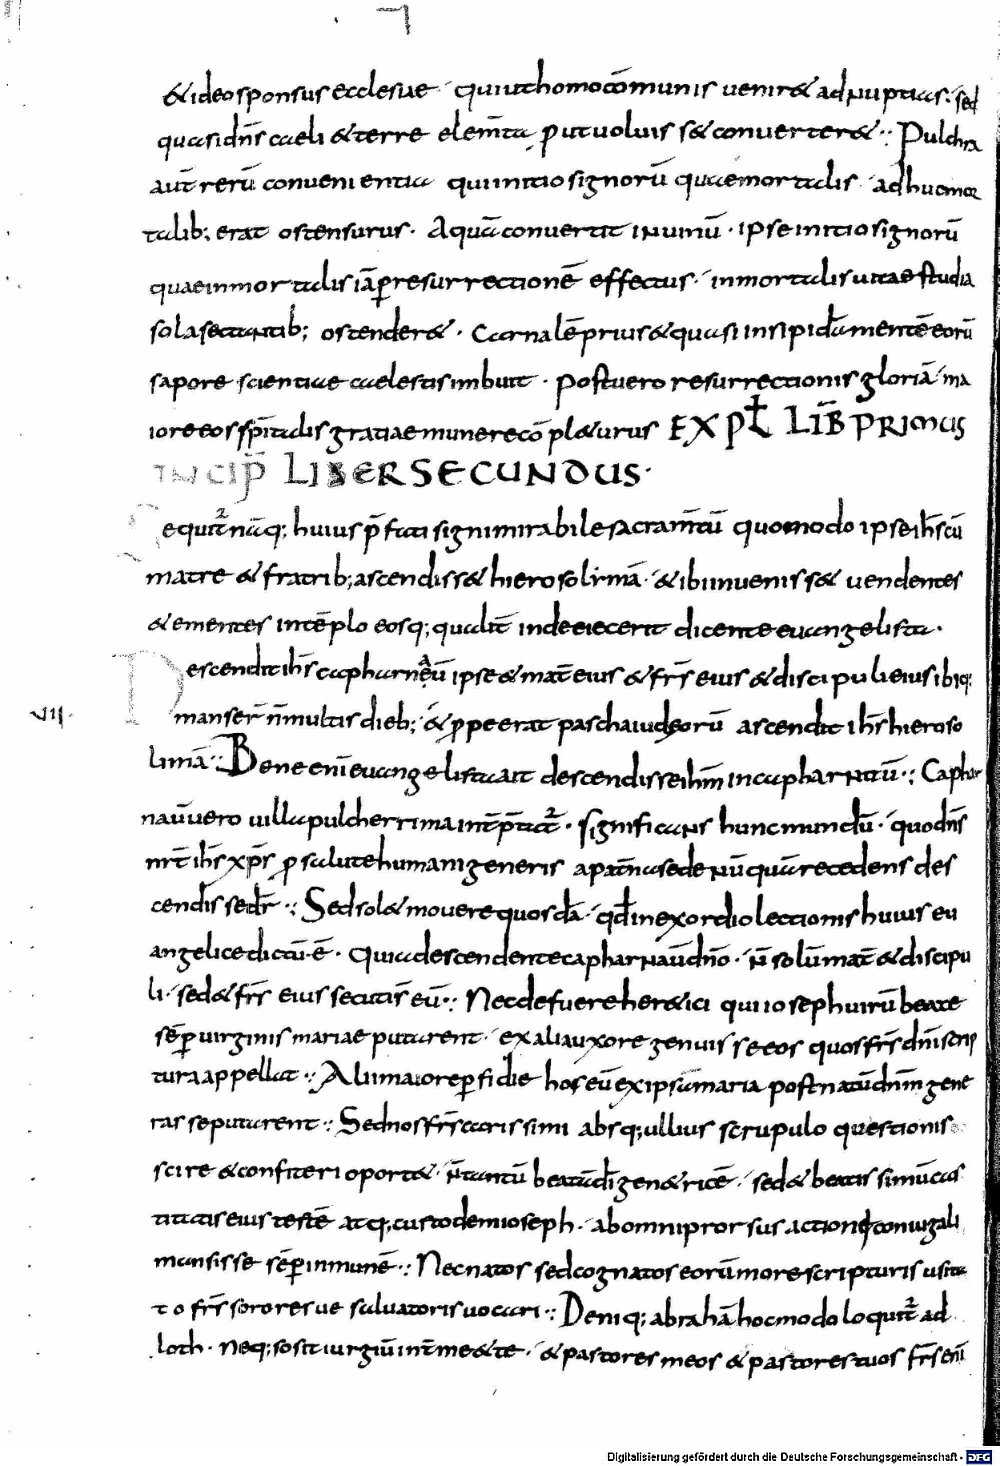 & ideo sponsus ecclesiae · qui ut homo cōmunis venir& ad nuptias · sed
quasi dn̄s caeli & terre elem̄ta ꝑut voluis s& converter& ·: Pulchra
aut̄ rerū convenientia qui initio signorū quae mortalis · adhuc mor
talib; erat ostensurus · Aquā convertit in vinū · ipse initio signorū
quae inmortalis iā ꝑ resurrectionē effectus · inmortalis vitae studia
sola sectantib; ostender& · Carnalē prius & quasi insipidā mentē eorū
sapore scientiae caelestis imbuit · post vero resurrectionis gloriā · ma
iore eos sp̄italis gratiae munere cōpl&urus EXPL̄ LIB̄ PRIMUS
INCIP̄ LIBER SECUNDUS ·
Sequit̄ nāq; huius p̄fati signi mirabile sacram̄tū quomodo ipse ih̄s cū
matre & fratrib; ascendiss& hierosolimā · & ibi inveniss& vendentes
& ementes in tēplo eosq; qualit̄ inde eiecerit dicente evangelista ·
Descendit ih̄s capharneaū ipse & mat̄ eius & fr̄s eius & discipuli eius ibiq;
VII ·
manser̄ n̄ multis dieb; & ꝓpe erat pascha iudeorū ascendit ih̄s hieroso
limā ·: Bene enī evangelista ait descendisse ih̄m in capharnaū ·; Caphar
naū vero villa pulcherrima int̄p̄tat̄ · significans hunc mundū · quo dn̄s
nr̄ ih̄s xp̄s ꝓ salute humani generis a pat̄na sede nūquā recedens des
cendisse dr̄ ·: Sed sol& movere quosdā · qd̄ in exordio lectionis huius eu
angelice dictū ē · Quia descendente capharnaū dn̄o · n̄ solū mat̄ & discipu
li · sed & fr̄s eius secuti s̄ eū ·: Nec defuere her&ici qui ioseph virū beate
sēꝑ virginis mariae putarent · ex alia uxore genuisse eos quos fr̄s dn̄i scrip
tura appellat ·: Alii maiore ꝑfidie hos eū ex ipsa maria post natū dn̄m gene
rasse putarent ·: Sed nos fr̄s carissimi absq; ullius scrupulo questionis
scire & confiteri oport& · n̄ tantū beatā dī gen&ricē · sed & beatissimū cas
titatis eius testē atq; custodem ioseph · ab omni prorsus actione coniugali
mansisse sēꝑ inmunē ·: Nec natos sed cognatos eorū more scripturis usita
to fr̄s sororesve salvatoris vocari ·: Deniq; abrahā hoc modo loquit̄ ad
loth · neq; so sit iurgiū int̄ me & te · & pastores meos & pastores tuos fr̄s enī
Digitalisierung gefördert durch die Deutsche Forschungsgemeinschaft - DFG